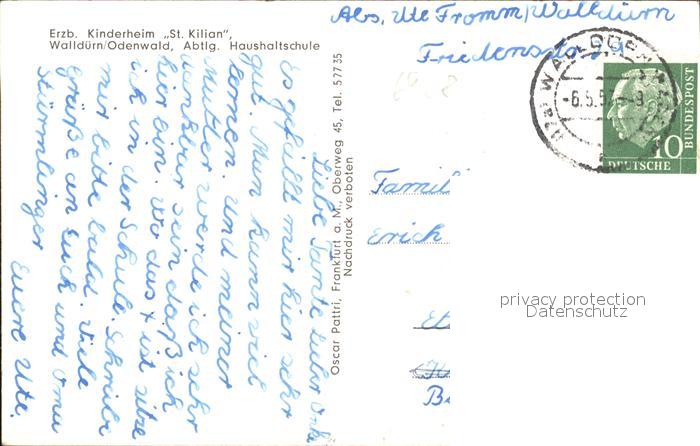 Erzb. Kinderheim „St. Kilian“,
Walldürn/Odenwald, Abtlg. Haushaltschule
Abs. Ute Fromm/Walldürn
Friedens
-6.5.5
10
DEUTSCHE
BUNDESPOST
Liebe Tante Onk
es gefällt mir hier sehr
gut. Man kann viel
lernen. und meiner
Mutter werde ich sehr
dankbar sein daß ich
hier bin. wo das x ist sitze
ich in der Schule. Schreibe
mir bitte bald. Viele
Grüße an Euch und Oma
Stürmlinger
Eure Ute.
Oscar Pattri, Frankfurt a. M., Oberweg 45, Tel. 57735
Nachdruck verboten
Famil
Erich
privacy protection
Datenschutz